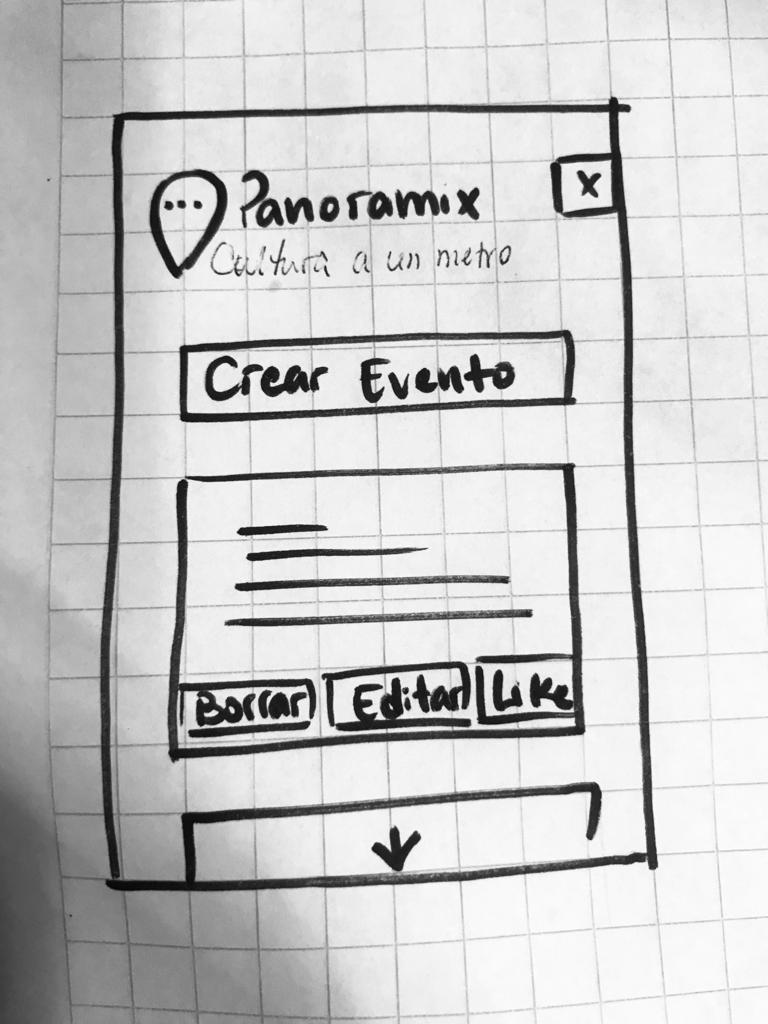 Panoramix
X
Cultura a un metro
Crear Evento
Borrar Editar Like